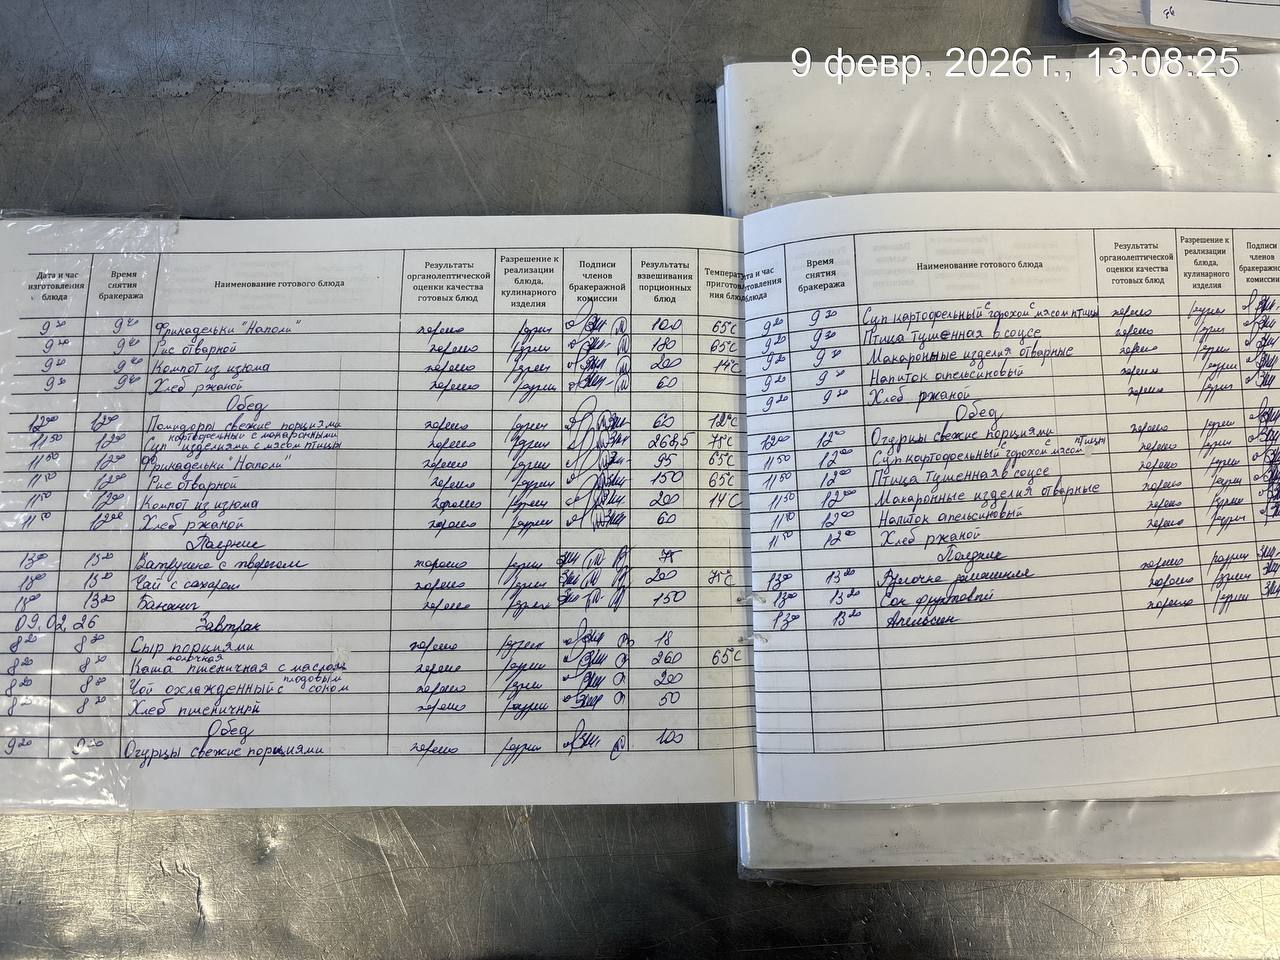 9 февр. 2026 г., 13:08:25
Дата и час изготовления блюда
Время снятия бракеража
Наименование готового блюда
Результаты органолептической оценки качества готовых блюд
Разрешение к реализации блюда, кулинарного изделия
Подписи членов бракеражной комиссии
Результаты взвешивания порционных блюд
9 30 9 40 Фрикадельки "Наполи" хорошо 100 65°С
9 30 9 40 Рис отварной хорошо 180 65°С
9 30 9 40 Компот из изюма хорошо 200 14°С
9 30 9 40 Хлеб ржаной хорошо 60
Обед
12 00 12 00 Помидоры свежие порциями хорошо 60
11 50 12 00 Суп картофельный с макаронными изделиями с мясом птицы хорошо 268,5 75°С
11 50 12 00 Фрикадельки "Наполи" хорошо 95 65°С
11 50 12 00 Рис отварной хорошо 150 65°С
11 50 12 00 Компот из изюма хорошо 200 14°С
12 00 Хлеб ржаной хорошо 60
Полдник
13 20 Ватрушка с творогом хорошо 75
13 20 Чай с сахаром хорошо 200 75°С
13 20 Бананы хорошо 150
09.02.26 Завтрак
8 20 8 30 Сыр порциями хорошо 18
8 20 8 30 Каша молочная пшеничная с маслом хорошо 260 65°С
8 20 8 30 Чай охлажденный с плодовым соком хорошо 200
8 20 8 30 Хлеб пшеничный хорошо 50
Обед
9 20 Огурцы свежие порциями хорошо 100
Время снятия бракеража
Наименование готового блюда
Результаты органолептической оценки качества готовых блюд
Разрешение к реализации блюда, кулинарного изделия
9 20 9 30 Суп картофельный с горохом с мясом птицы хорошо
9 20 9 30 Птица тушенная в соусе хорошо
9 20 9 30 Макаронные изделия отварные хорошо
9 20 9 30 Напиток апельсиновый хорошо
9 20 9 30 Хлеб ржаной хорошо
Обед
12 00 12 00 Огурцы свежие порциями хорошо
11 50 12 00 Суп картофельный с горохом с мясом птицы хорошо
11 50 12 00 Птица тушенная в соусе хорошо
11 50 12 00 Макаронные изделия отварные хорошо
11 50 12 00 Напиток апельсиновый хорошо
11 50 12 00 Хлеб ржаной
Полдник
13 20 домашняя хорошо
13 20 Сок фруктовый хорошо
13 20 Апельсин хорошо